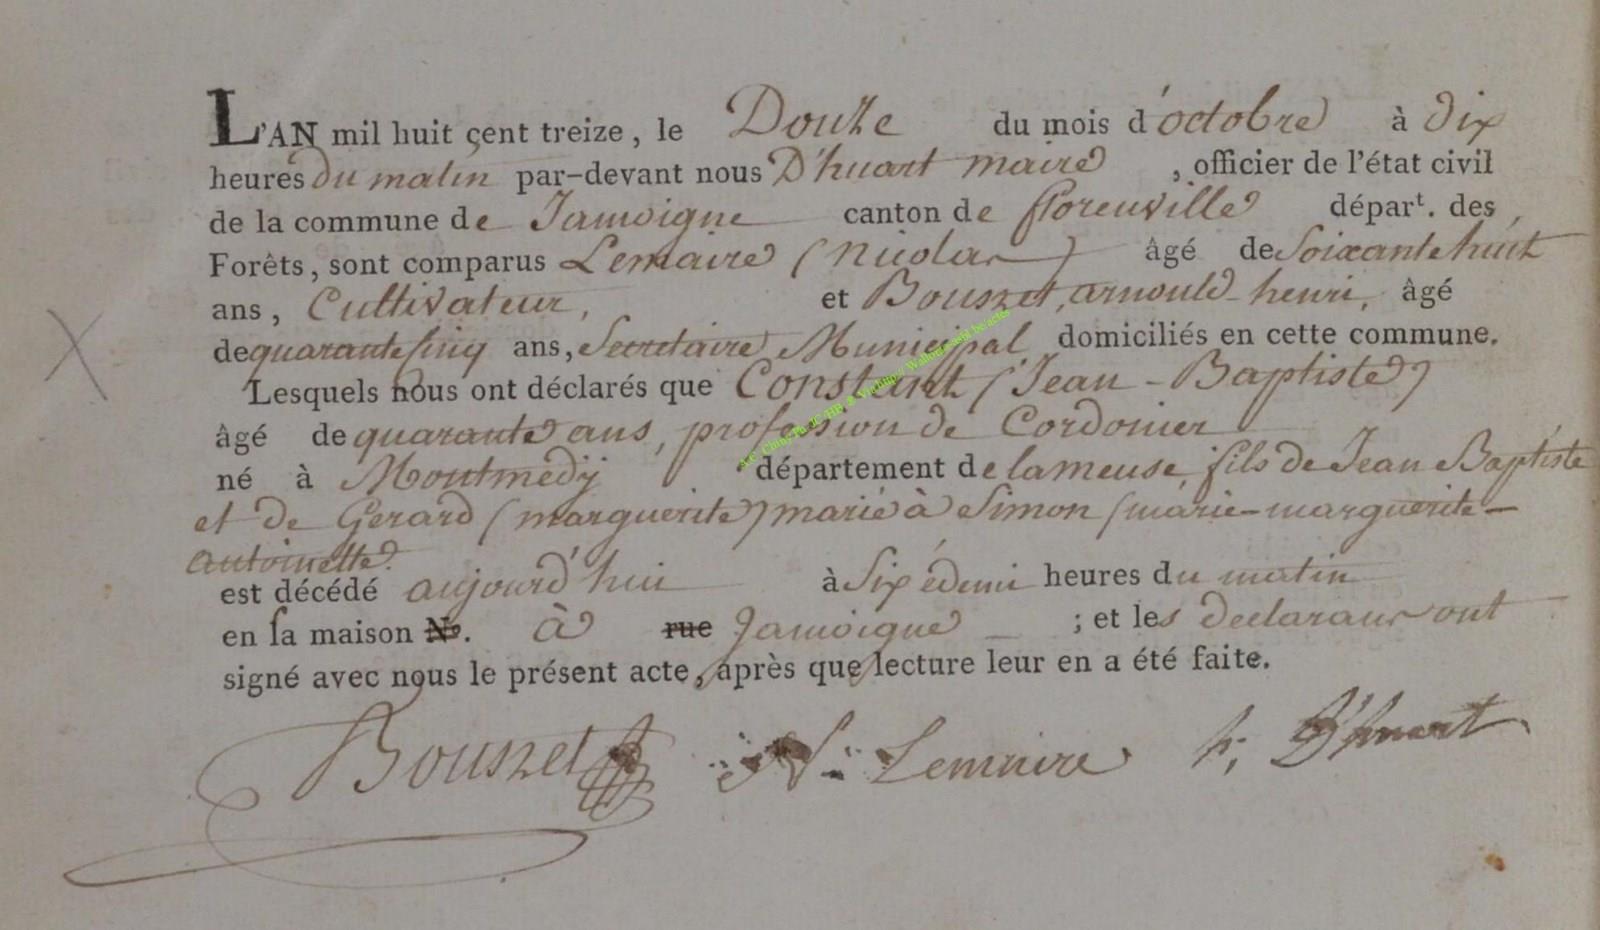 L'AN mil huit cent treize, le Douze du mois d'octobre à dix
heures du matin par-devant nous D'huart maire, officier de l'état civil
de la commune de Jamoigne canton de florenvilleépart. des
Forêts, sont comparus Lemaire (Nicolas) âgé de Soixante huit
ans, Cultivateur, et Bouszet, arnould-henri, âgé
de quarante cinq ans, Secretaire Municipal domiciliés en cette commune.
Lesquels nous ont déclarés que Constant (Jean-Baptiste)
âgé de quarante ans, profession de Cordonier
né à Montmedij département de lameuse, fils de Jean Baptiste
et de Gerard (marguerite) marié à Simon (marie-marguerite-
antoinette)
est décédé aujourd'hui à Six édemi heures du matin
en sa maison No. à rue Jamoigne ; et les declarans ont
signé avec nous le présent acte, après que lecture leur en a été faite.
Bouszet N. Lemaire h. D'huart